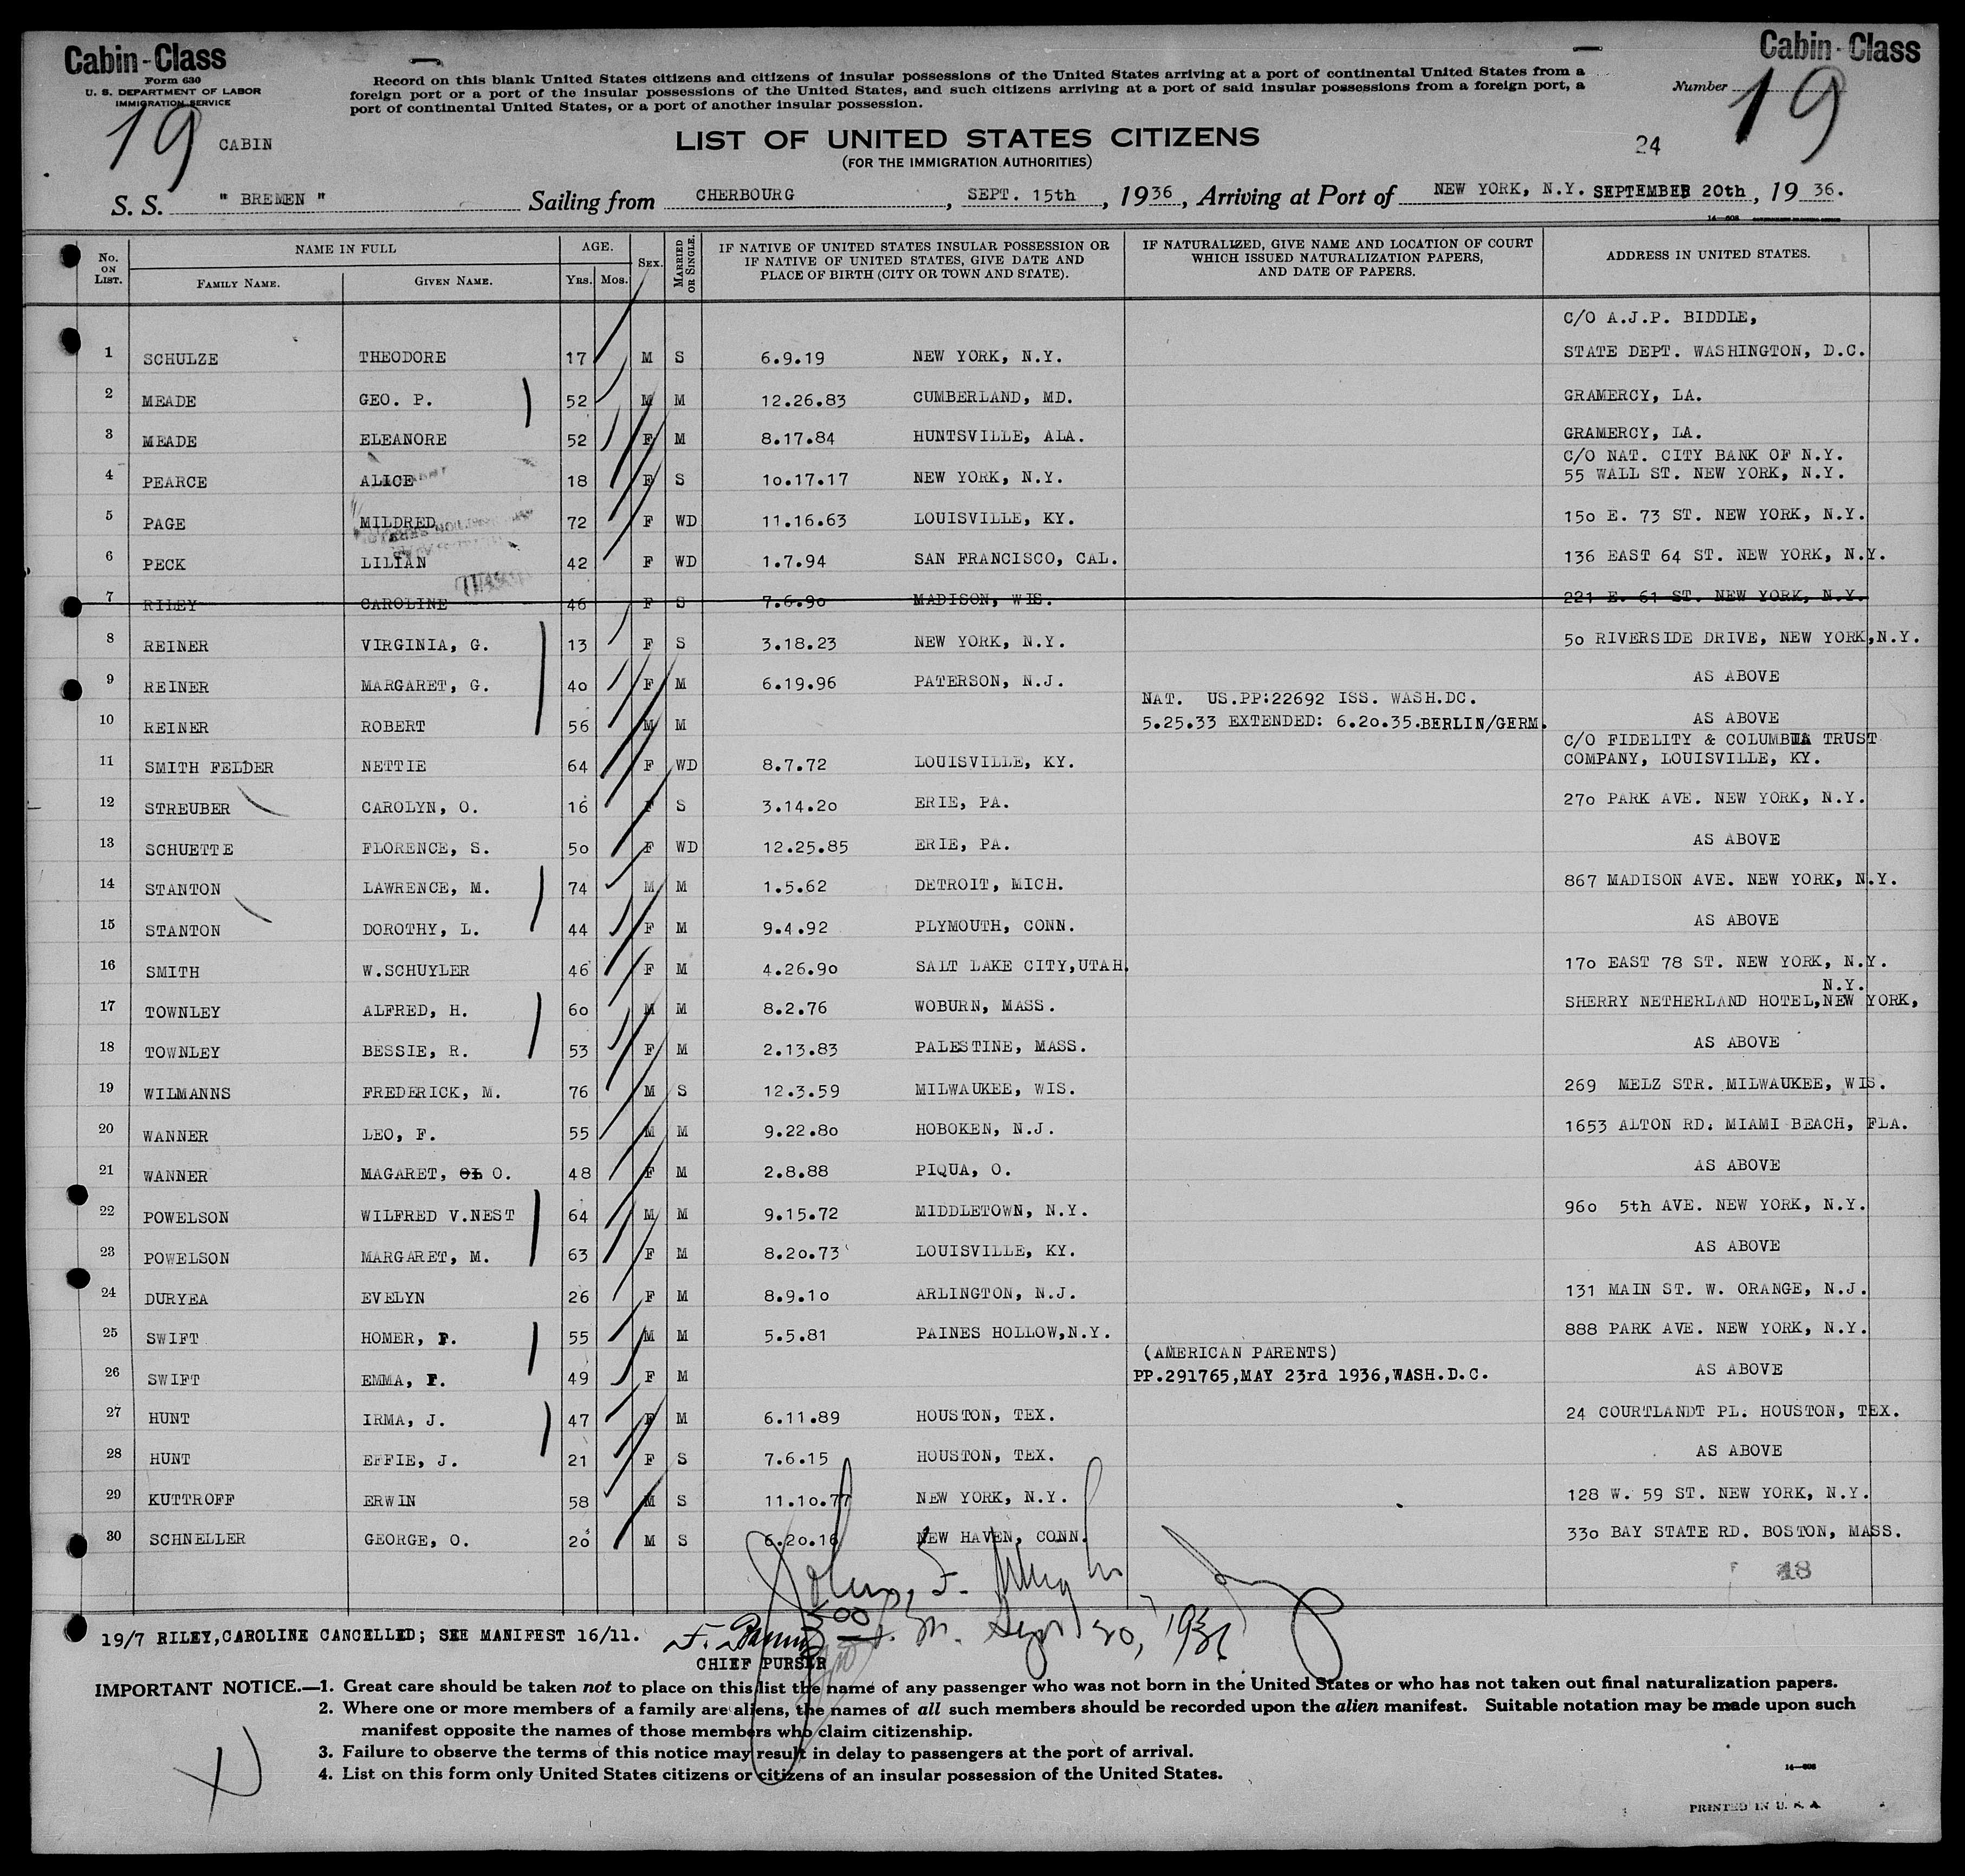 Cabin-Class
Form 630
U. S. DEPARTMENT OF LABOR
IMMIGRATION SERVICE
19 CABIN
Record on this blank United States citizens and citizens of insular possessions of the United States arriving at a port of continental United States from a
foreign port or a port of the insular possessions of the United States, and such citizens arriving at a port of said insular possessions from a foreign port, a
port of continental United States, or a port of another insular possession.
Cabin-Class
Number 19
24
LIST OF UNITED STATES CITIZENS
(FOR THE IMMIGRATION AUTHORITIES)
S. S. " BREMEN " Sailing from CHERBOURG, SEPT. 15th, 1936, Arriving at Port of NEW YORK, N.Y. SEPTEMBER 20th, 1936.
14—808
No. ON LIST. NAME IN FULL FAMILY NAME. GIVEN NAME. AGE. YRS. MOS. SEX. MARRIED OR SINGLE. IF NATIVE OF UNITED STATES INSULAR POSSESSION OR IF NATIVE OF UNITED STATES, GIVE DATE AND PLACE OF BIRTH (CITY OR TOWN AND STATE). IF NATURALIZED, GIVE NAME AND LOCATION OF COURT WHICH ISSUED NATURALIZATION PAPERS, AND DATE OF PAPERS. ADDRESS IN UNITED STATES.
C/O A.J.P. BIDDLE,
1 SCHULZE THEODORE 17 M S 6.9.19 NEW YORK, N.Y. STATE DEPT. WASHINGTON, D.C.
2 MEADE GEO. P. 52 M M 12.26.83 CUMBERLAND, MD. GRAMERCY, LA.
3 MEADE ELEANORE 52 F M 8.17.84 HUNTSVILLE, ALA. GRAMERCY, LA.
C/O NAT. CITY BANK OF N.Y.
4 PEARCE ALICE 18 F S 10.17.17 NEW YORK, N.Y. 55 WALL ST. NEW YORK, N.Y.
5 PAGE MILDRED 72 F WD 11.16.63 LOUISVILLE, KY. 150 E. 73 ST. NEW YORK, N.Y.
6 PECK LILIAN 42 F WD 1.7.94 SAN FRANCISCO, CAL. 136 EAST 64 ST. NEW YORK, N.Y.
7 RILEY CAROLINE 46 F S 7.6.90 MADISON, WIS. 221 E. 61 ST. NEW YORK, N.Y.
8 REINER VIRGINIA, G. 13 F S 3.18.23 NEW YORK, N.Y. 50 RIVERSIDE DRIVE, NEW YORK,N.Y.
9 REINER MARGARET, G. 40 F M 6.19.96 PATERSON, N.J. AS ABOVE
NAT. US.PP:22692 ISS. WASH.DC.
10 REINER ROBERT 56 M M 5.25.33 EXTENDED: 6.20.35.BERLIN/GERM. AS ABOVE
C/O FIDELITY & COLUMBIA TRUST
11 SMITH FELDER NETTIE 64 F WD 8.7.72 LOUISVILLE, KY. COMPANY, LOUISVILLE, KY.
12 STREUBER CAROLYN, O. 16 F S 3.14.20 ERIE, PA. 270 PARK AVE. NEW YORK, N.Y.
13 SCHUETTE FLORENCE, S. 50 F WD 12.25.85 ERIE, PA. AS ABOVE
14 STANTON LAWRENCE, M. 74 M M 1.5.62 DETROIT, MICH. 867 MADISON AVE. NEW YORK, N.Y.
15 STANTON DOROTHY, L. 44 F M 9.4.92 PLYMOUTH, CONN. AS ABOVE
16 SMITH W.SCHUYLER 46 F M 4.26.90 SALT LAKE CITY,UTAH. 170 EAST 78 ST. NEW YORK, N.Y.
N.Y.
17 TOWNLEY ALFRED, H. 60 M M 8.2.76 WOBURN, MASS. SHERRY NETHERLAND HOTEL,NEW YORK,
18 TOWNLEY BESSIE, R. 53 F M 2.13.83 PALESTINE, MASS. AS ABOVE
19 WILMANNS FREDERICK, M. 76 M S 12.3.59 MILWAUKEE, WIS. 269 MELZ STR. MILWAUKEE, WIS.
20 WANNER LEO, F. 55 M M 9.22.80 HOBOKEN, N.J. 1653 ALTON RD. MIAMI BEACH, FLA.
21 WANNER MAGARET, O. 48 F M 2.8.88 PIQUA, O. AS ABOVE
22 POWELSON WILFRED V.NEST 64 M M 9.15.72 MIDDLETOWN, N.Y. 960 5th AVE. NEW YORK, N.Y.
23 POWELSON MARGARET, M. 63 F M 8.20.73 LOUISVILLE, KY. AS ABOVE
24 DURYEA EVELYN 26 F M 8.9.10 ARLINGTON, N.J. 131 MAIN ST. W. ORANGE, N.J.
25 SWIFT HOMER, F. 55 M M 5.5.81 PAINES HOLLOW,N.Y. 888 PARK AVE. NEW YORK, N.Y.
(AMERICAN PARENTS)
26 SWIFT EMMA, F. 49 F M PP.291765,MAY 23rd 1936,WASH.D.C. AS ABOVE
27 HUNT IRMA, J. 47 F M 6.11.89 HOUSTON, TEX. 24 COURTLANDT PL. HOUSTON, TEX.
28 HUNT EFFIE, J. 21 F S 7.6.15 HOUSTON, TEX. AS ABOVE
29 KUTTROFF ERWIN 58 M S 11.10.77 NEW YORK, N.Y. 128 W. 59 ST. NEW YORK, N.Y.
30 SCHNELLER GEORGE, O. 20 M S 6.20.16 NEW HAVEN, CONN. 330 BAY STATE RD. BOSTON, MASS.
48
19/7 RILEY,CAROLINE CANCELLED; SEE MANIFEST 16/11.
Sept 20, 1936
CHIEF PURSER
IMPORTANT NOTICE.—1. Great care should be taken not to place on this list the name of any passenger who was not born in the United States or who has not taken out final naturalization papers.
2. Where one or more members of a family are aliens, the names of all such members should be recorded upon the alien manifest. Suitable notation may be made upon such
manifest opposite the names of those members who claim citizenship.
3. Failure to observe the terms of this notice may result in delay to passengers at the port of arrival.
4. List on this form only United States citizens or citizens of an insular possession of the United States.
14—808
PRINTED IN U. S. A.